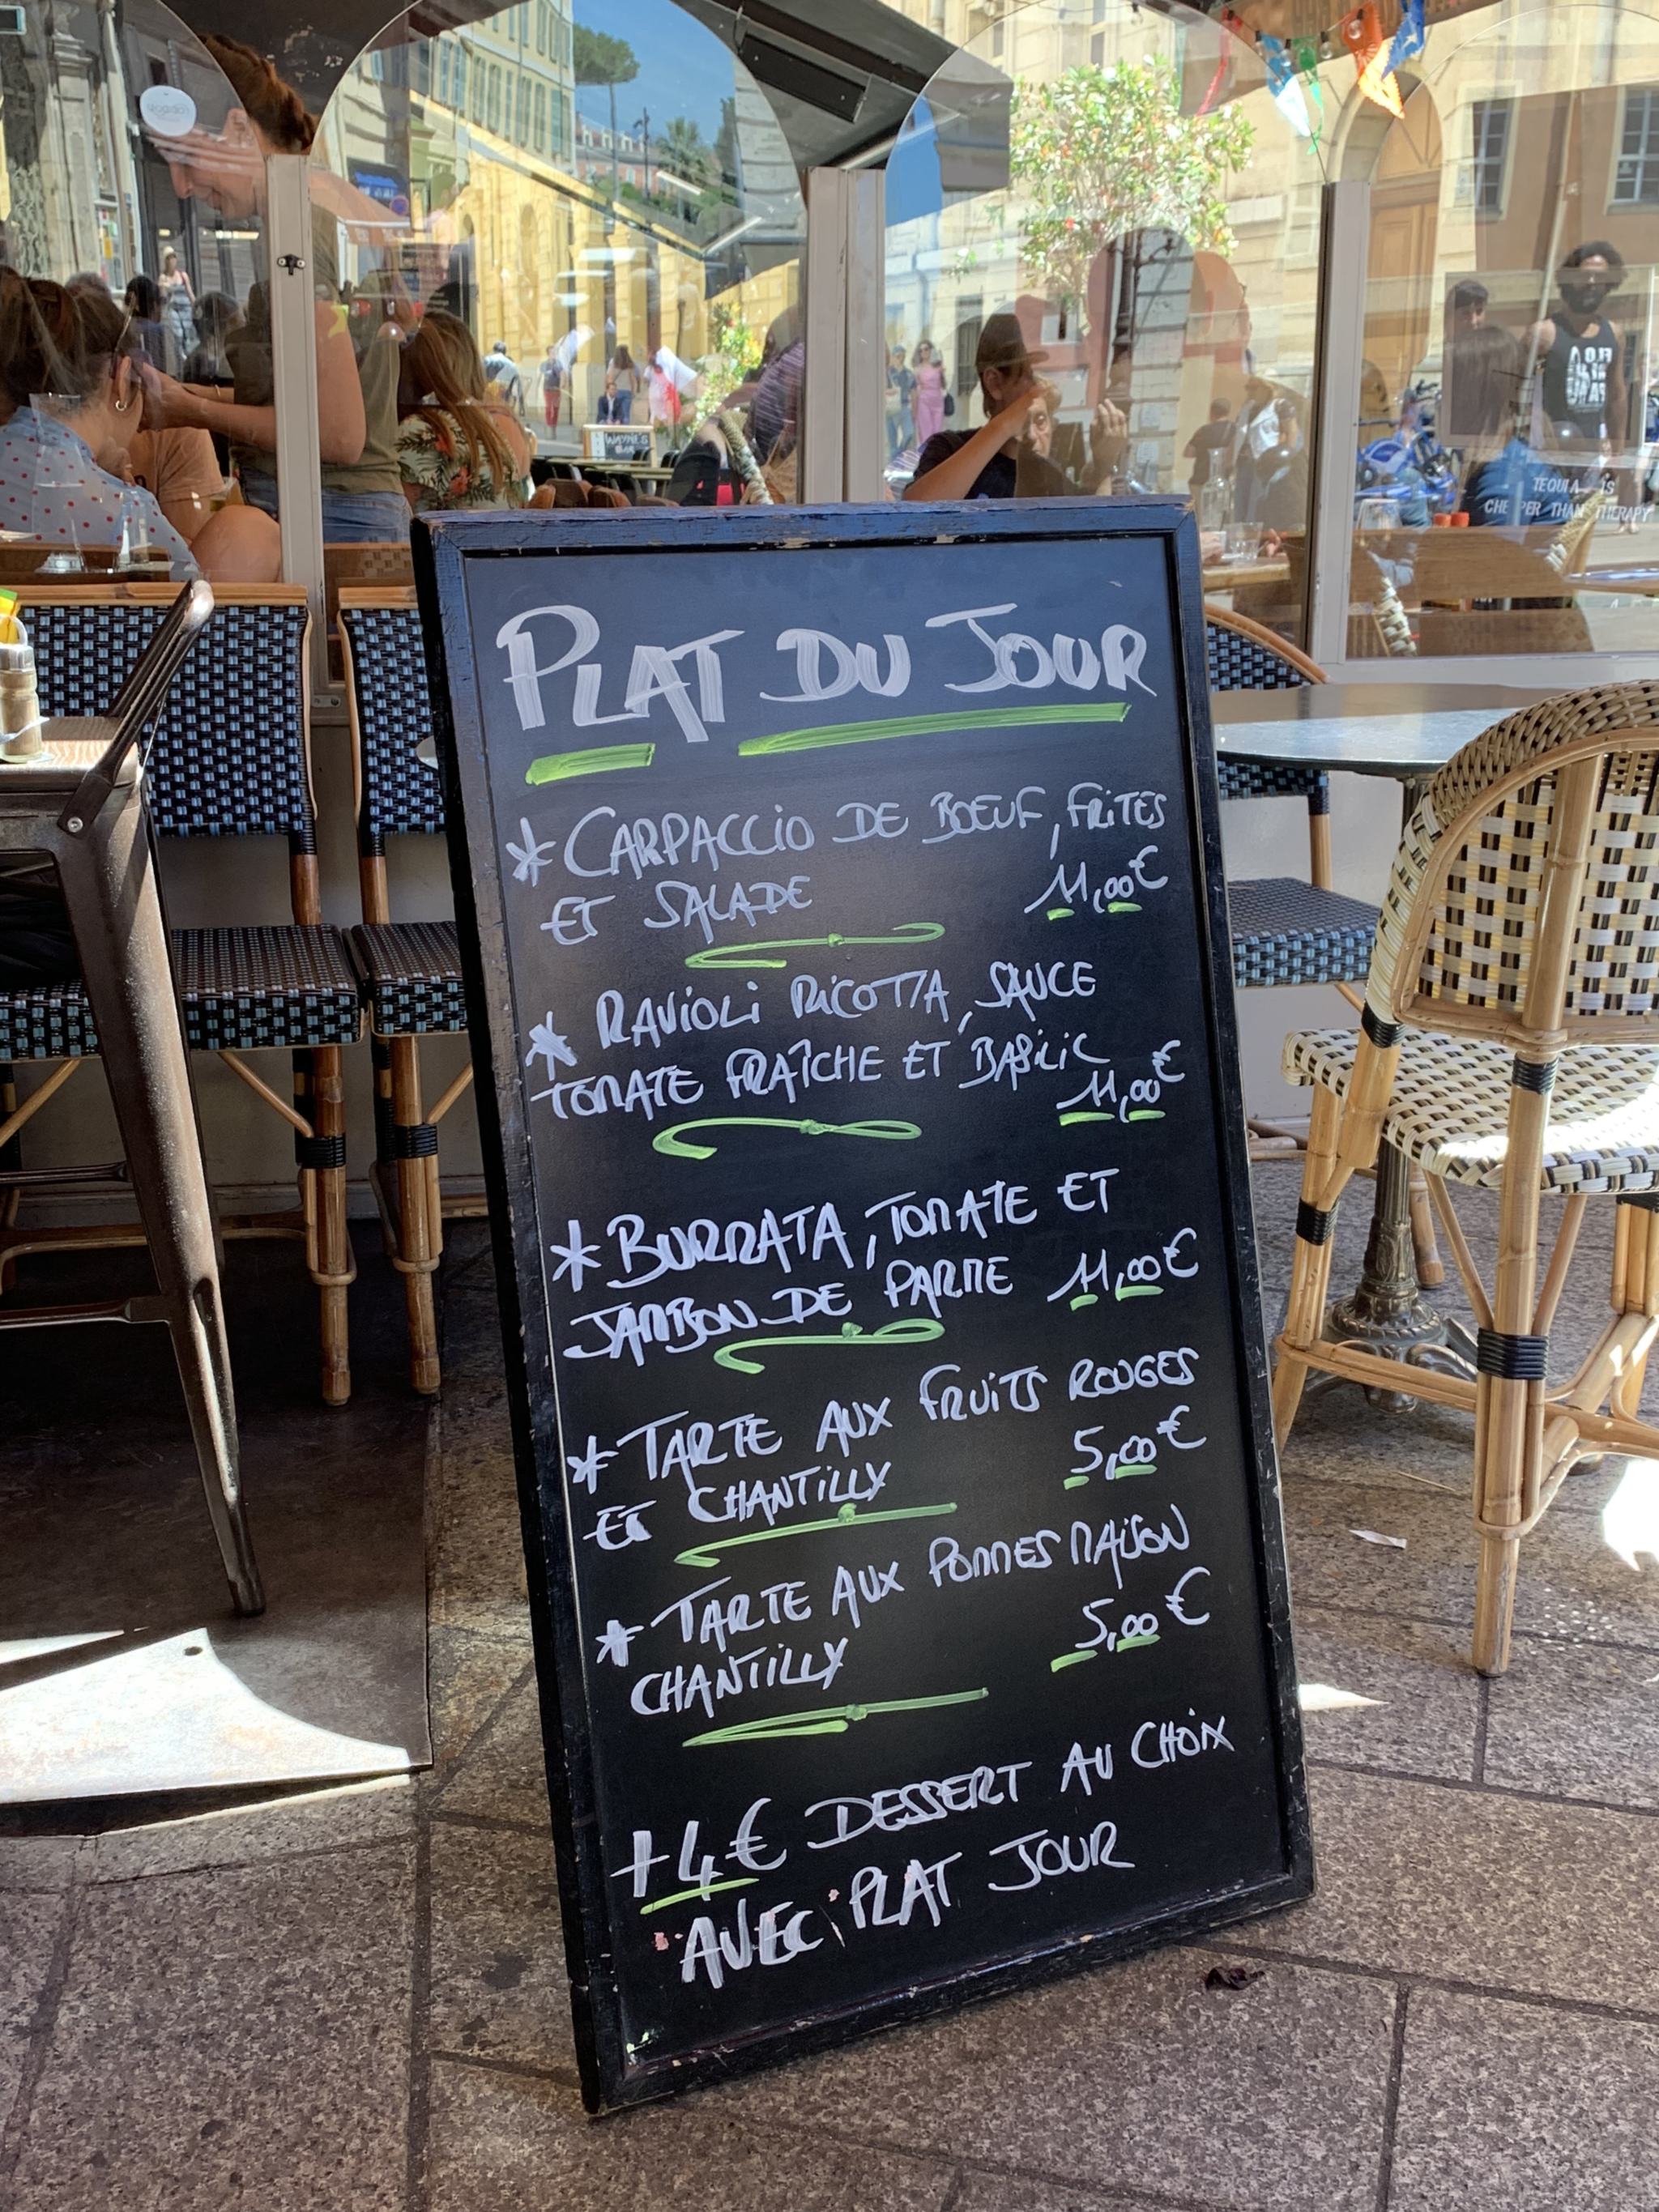 WAYNE'S
TEQUILA IS
CHEAPER THAN THERAPY
PLAT DU JOUR
* CARPACCIO DE BOEUF, FRITES
ET SALADE 11,00€
* RAVIOLI RICOTTA, SAUCE
TOMATE FRAÎCHE ET BASILIC
11,00€
* BURRATA, TOMATE ET
JAMBON DE PARME 11,00€
* TARTE AUX FRUITS ROUGES
ET CHANTILLY 5,00€
* TARTE AUX POMMES MAISON
CHANTILLY 5,00€
+4€ DESSERT AU CHOIX
AVEC PLAT JOUR